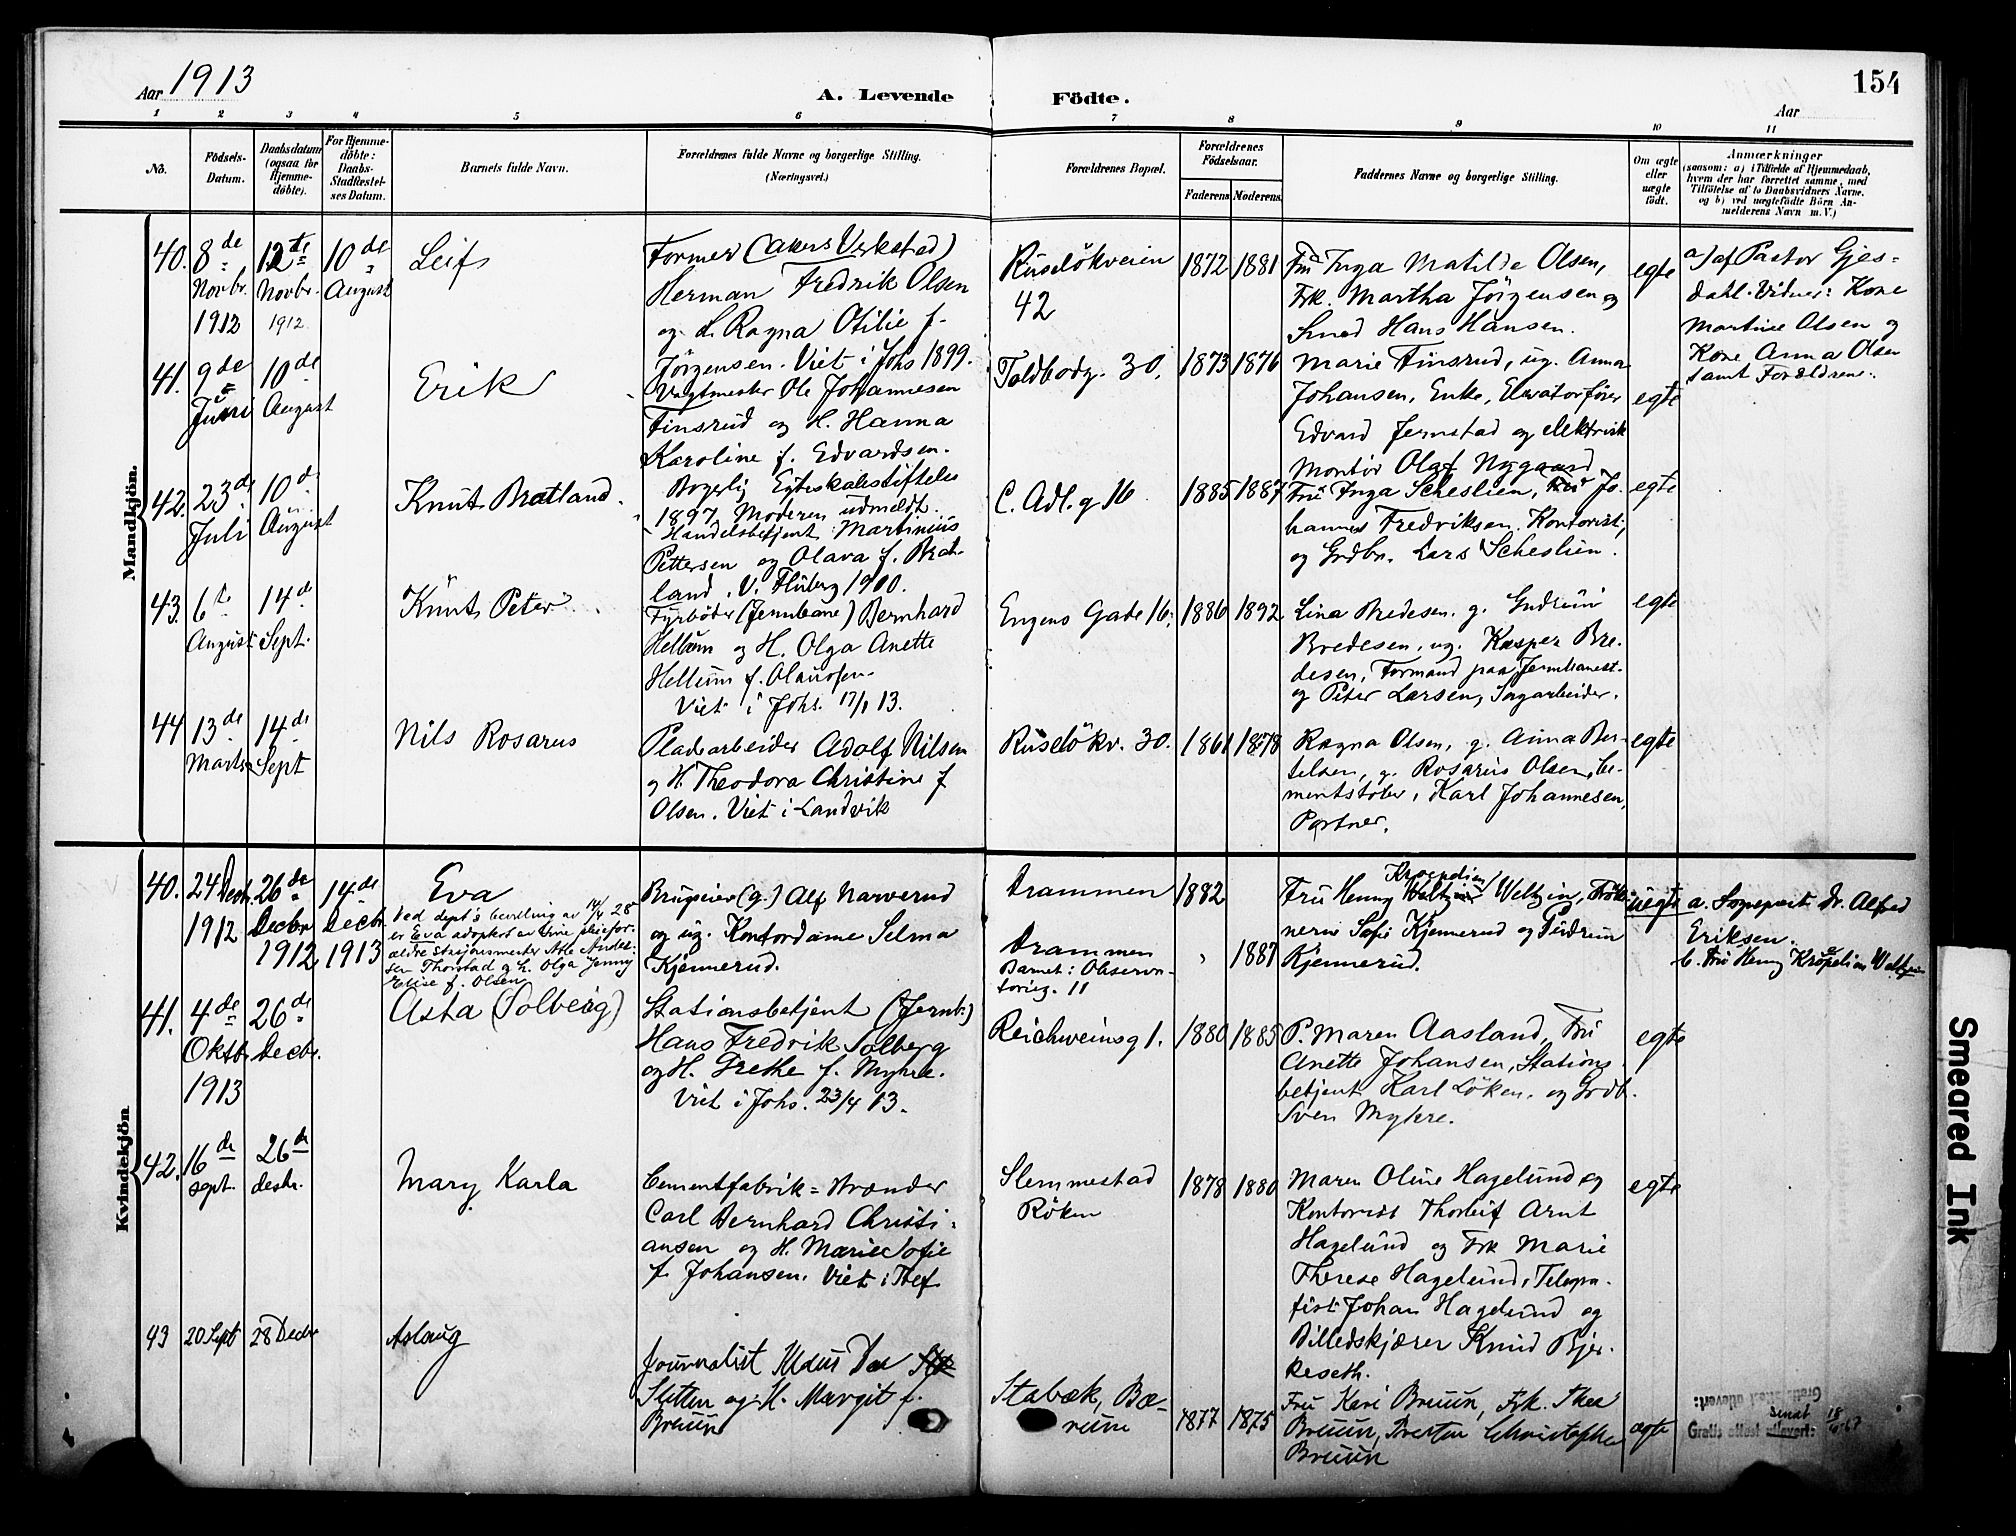 Aar 1913
A. Levende Födte.
Aar
154
1 2 3 4 5 6 7 8 9 10 11
No.
Födsels-
Datum.
Daabsdatum
(ogsaa for
Hjemme-
döbte).
For Hjemme-
döbte:
Daabs-
Stadfæstel-
ses Datum.
Barnets fulde Navn.
Forældrenes fulde Navne og borgerlige Stilling.
(Næringsvei.)
Forældrenes Bopæl.
Forældrenes
Födselsaar.
Faderens Moderens
Faddernes Navne og borgerlige Stilling.
Om ægte
eller
uægte
födt.
Anmærkninger
(saasom: a) i Tilfælde af Hjemmedaab,
hvem der har forrettet samme, med
Tilföielse af to Daabsvidners Navne,
og b) ved uægtefödte Börn An-
melderens Navn m. V.)
Mandkjön.
40.
8de
Novbr.
1912
12te
Novbr.
1912
10de
August
Leif
Former (Akers Verksted)
Herman Fredrik Olsen
og L. Ragna Otilie f.
Jörgensen. Viet i Johs 1899.
Ruselökveien
42
1872
1881
Fru Inga Matilde Olsen,
Frk. Martha Jörgensen og
Smed Hans Hansen.
egte
a) af Pastor Gjes-
dahl. Vidner: Kone
Martine Olsen og
Kone Anna Olsen
samt Forældrene.
41.
9de
Juni
10de
August
Erik
Vagtmester Ole Johannesen
Finsrud og H. Hanna
Karoline f. Edvardsen.
Borgerlig Egteskabsstiftelse
1897. Moderen udmeldt.
Toldbodg. 30.
1873
1876
Marie Finsrud, ug. Anna
Johansen, Enke, Elevatorfører
Edvard Jernstad og elektrisk
Montör Olaf Nygaard
egte
42.
23de
Juli
10de
August
Knut Bratland
Handelsbetjent Martinius
Pettersen og Olava f. Brat-
land. V. Fluberg 1900.
C. Adl. g 16
1885
1887
Fru Inga Scheslien, Fru Jo-
hanna Fredriksen, Kontorist,
og Grdbr. Lars Scheslien.
egte
43.
6te
August
14de
Sept.
Knut Peter
Fyrböder (Jernbane) Bernhard
Hellum og H. Olga Anette
Hellum f. Olausen.
Viet i Johs. 17/1 13.
Engens Gade 16.
1886
1892
Lina Bredesen. g. Gudrun
Bredesen, ug. Kasper Bre-
desen, Formand paa Jernbanest.
og Peter Larsen, Sagarbeider.
egte
44
13de
Marts
14de
Sept
Nils Rosarus
Pladearbeider Adolf Nilsen
og H. Theodora Christine f
Olsen. Viet i Landvik
Ruselökv. 30.
1861
1878
Ragna Olsen, g. Anna Ber-
telsen, g. Rosarius Olsen, Ce-
mentstöber, Karl Johannesen,
Portner.
egte
Kvindekjön.
40.
24 Decbr.
1912
26de
Decbr
1912
14de
Decbr.
1913
Eva
Ved dept's bevilling av 14/4 28
er Eva adoptert av sine pleiefor-
ældre Stasjonsmester Atle Andre-
sen Thorstad og h. Olga Jenny
Elise f. Olsen
Brugseier (g.) Alf Narverud
og ug. Kontordame Selma
Kjennerud.
Drammen
Drammen
Barnet: Observa-
torieg. 11
1882
1887
Kroepelien
Fru Henny Weltzin, Frök-
nerne Sofie Kjennerud og Gudrun
Kjennerud.
uegte
a. Sognepræst Dr. Alfred
Eriksen.
b. Fru Henny Kröpelien Weltzin
41.
4de
Oktbr.
1913
26de
Decbr.
Asta (Solberg)
Stationsbetjent (Jernb.)
Hans Fredrik Solberg
og H. Grethe f. Myhre.
Viet i Johs. 23/4 13.
Reichweinsg 1.
1880
1885
P. Maren Aasland, Fru
Anette Johansen, Stations
betjent Karl Löken. og Grdb.
Sven Myhre.
egte
42.
16de
sept.
26de
desbr.
Mary Karla
Cementfabrik=brænder
Carl Bernhard Christi-
ansen og H. Marie Sofie
f. Johansen. Viet i
Slemmestad
Röken
1878
1880
Maren Oline Hagelund og
Kontorist Thorleif Arnt
Hagelund og Frk Marie
Therese Hagelund, Telegra-
fist Johan Hagelund og
Billedskjærer Knud Bjer-
keseth.
egte
43
20 Sept
28 Decbr
Aslaug
Journalist Klaus Dae
Sletten og H. Margit f.
Bruun
Stabæk, Bæ-
rum
1877
1875
Fru Kari Bruun, Frk. Thea
Bruun, Prestn Christopher
Bruun
egte
Gratis attest utlevert:
Gratis attest utlevert:
sendt
18/6-67
Smeared Ink